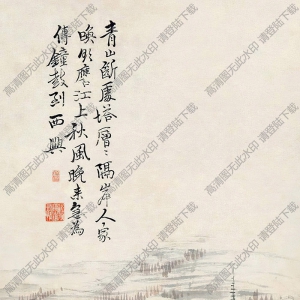 青山断處塔層〻隔岸人家
喚欲應江上秋風晚来急為
傳鐘鼓到西興
高清图无此水印 请登陆下载
高清图无此水印 请登陆下载
高清图无此水印 请登陆下载
高清图无此水印 请登陆下载